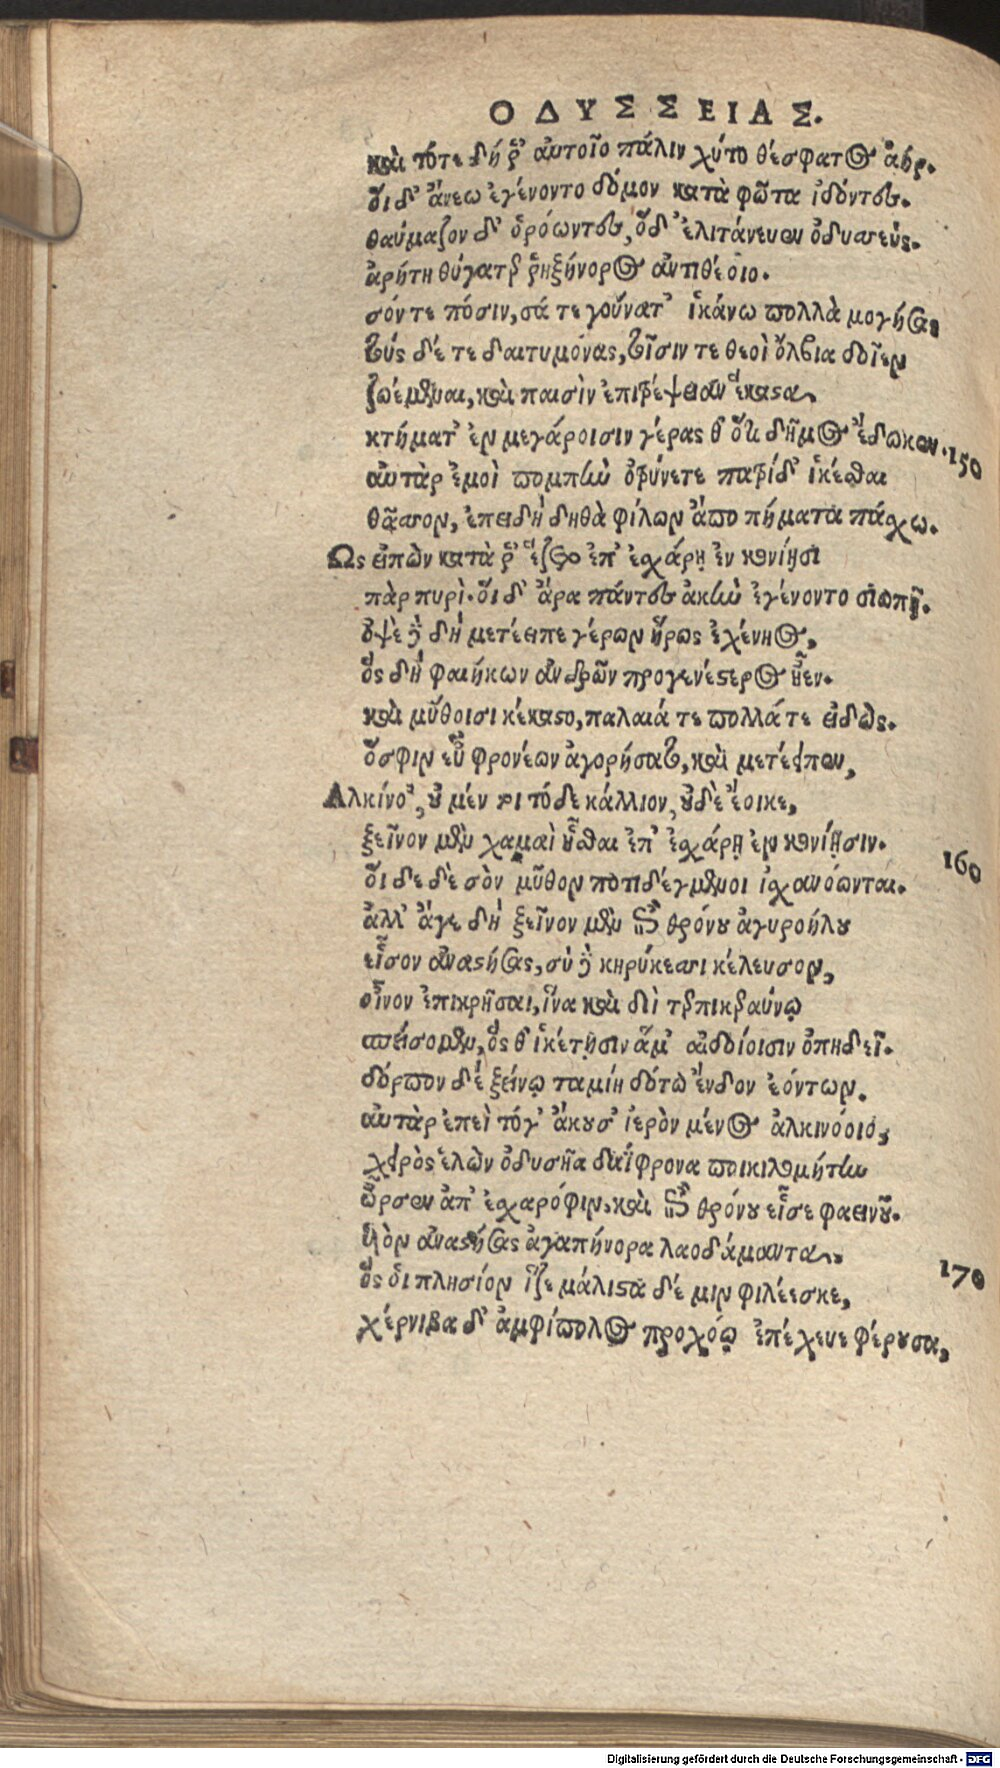 ΟΔΥΣΣΕΙΑΣ.
καὶ τότε δή ῥ' αὐτοῖο πάλιν χύτο θέσφατος ἀήρ.
οἵ δ' ἄνεω ἐγένοντο δόμον κατὰ φῶτα ἰδόντες.
θαύμαζον δ' ὁρόωντες, ὅδ' ἐλιτάνευεν ὀδυσσεύς.
ἀρήτη θύγατερ ῥηξήνορος ἀντιθέοιο.
σόν τε πόσιν, σά τε γούνατ' ἱκάνω πολλὰ μογήσας
τούς δέ τε δαιτυμόνας, τοῖσιν τε θεοὶ ὄλβια δοῖεν
ζωέμεναι, καὶ παισὶν ἐπιτρέψειεν ἕκαστος
κτήματ' ἐν μεγάροισιν γέρας θ' ὅτι δῆμος ἔδωκεν. 150
αὐτὰρ ἐμοὶ πομπὴν ὀτρύνετε πατρίδ' ἱκέσθαι
θᾶσσον, ἐπειδὴ δηθὰ φίλων ἄπο πήματα πάσχω.
Ως εἰπὼν κατὰ ῥ' ἕζετο ἐπ' ἐσχάρῃ ἐν κονίῃσι
πὰρ πυρὶ. οἵ δ' ἄρα πάντες ἀκὴν ἐγένοντο σιωπῇ.
ὀψὲ δὲ δὴ μετέειπε γέρων ἥρως ἐχένηος,
ὅς δὴ φαιήκων ἀνδρῶν προγενέστερος ἦεν.
καὶ μύθοισι κέκαστο, παλαιά τε πολλά τε εἰδώς.
ὅσφιν εὖ φρονέων ἀγορήσατο, καὶ μετέειπεν,
Αλκίνο', οὐ μέν τοι τόδε κάλλιον, οὐδὲ ἔοικε,
ξεῖνον μὲν χαμαὶ ἧσθαι ἐπ' ἐσχάρῃ ἐν κονίῃσιν. 160
οἵ δε δὲ σὸν μῦθον ποτιδέγμενοι ἰσχανόωνται.
ἀλλ' ἄγε δὴ ξεῖνον μὲν ἐπὶ θρόνου ἀγυροήλου
εἷσον ἀναστήσας, σὺ δὲ κηρύκεσσι κέλευσον,
οἶνον ἐπικρῆσαι, ἵνα καὶ διὶ τερπικεραύνῳ
σπείσομεν, ὅς θ' ἱκέτῃσιν ἅμ' αἰδοίοισιν ὀπηδεῖ.
δόρπον δέ ξείνῳ ταμίη δότω ἔνδον ἐόντων.
αὐτὰρ ἐπεὶ τόγ' ἄκουσ' ἱερὸν μένος ἀλκινόοιο,
χειρὸς ἑλὼν ὀδυσῆα δαΐφρονα ποικιλομήτην
ὦρσεν ἀπ' ἐσχαρόφιν, καὶ ἐπὶ θρόνου εἷσε φαεινοῦ.
υἱὸν ἀναστήσας ἀγαπήνορα λαοδάμαντα, 170
ὅς οἱ πλησίον ἷζε μάλιστα δέ μιν φιλέεσκε,
χέρνιβα δ' ἀμφίπολος προχόῳ ἐπέχευε φέρουσα,
Digitalisierung gefördert durch die Deutsche Forschungsgemeinschaft - DFG